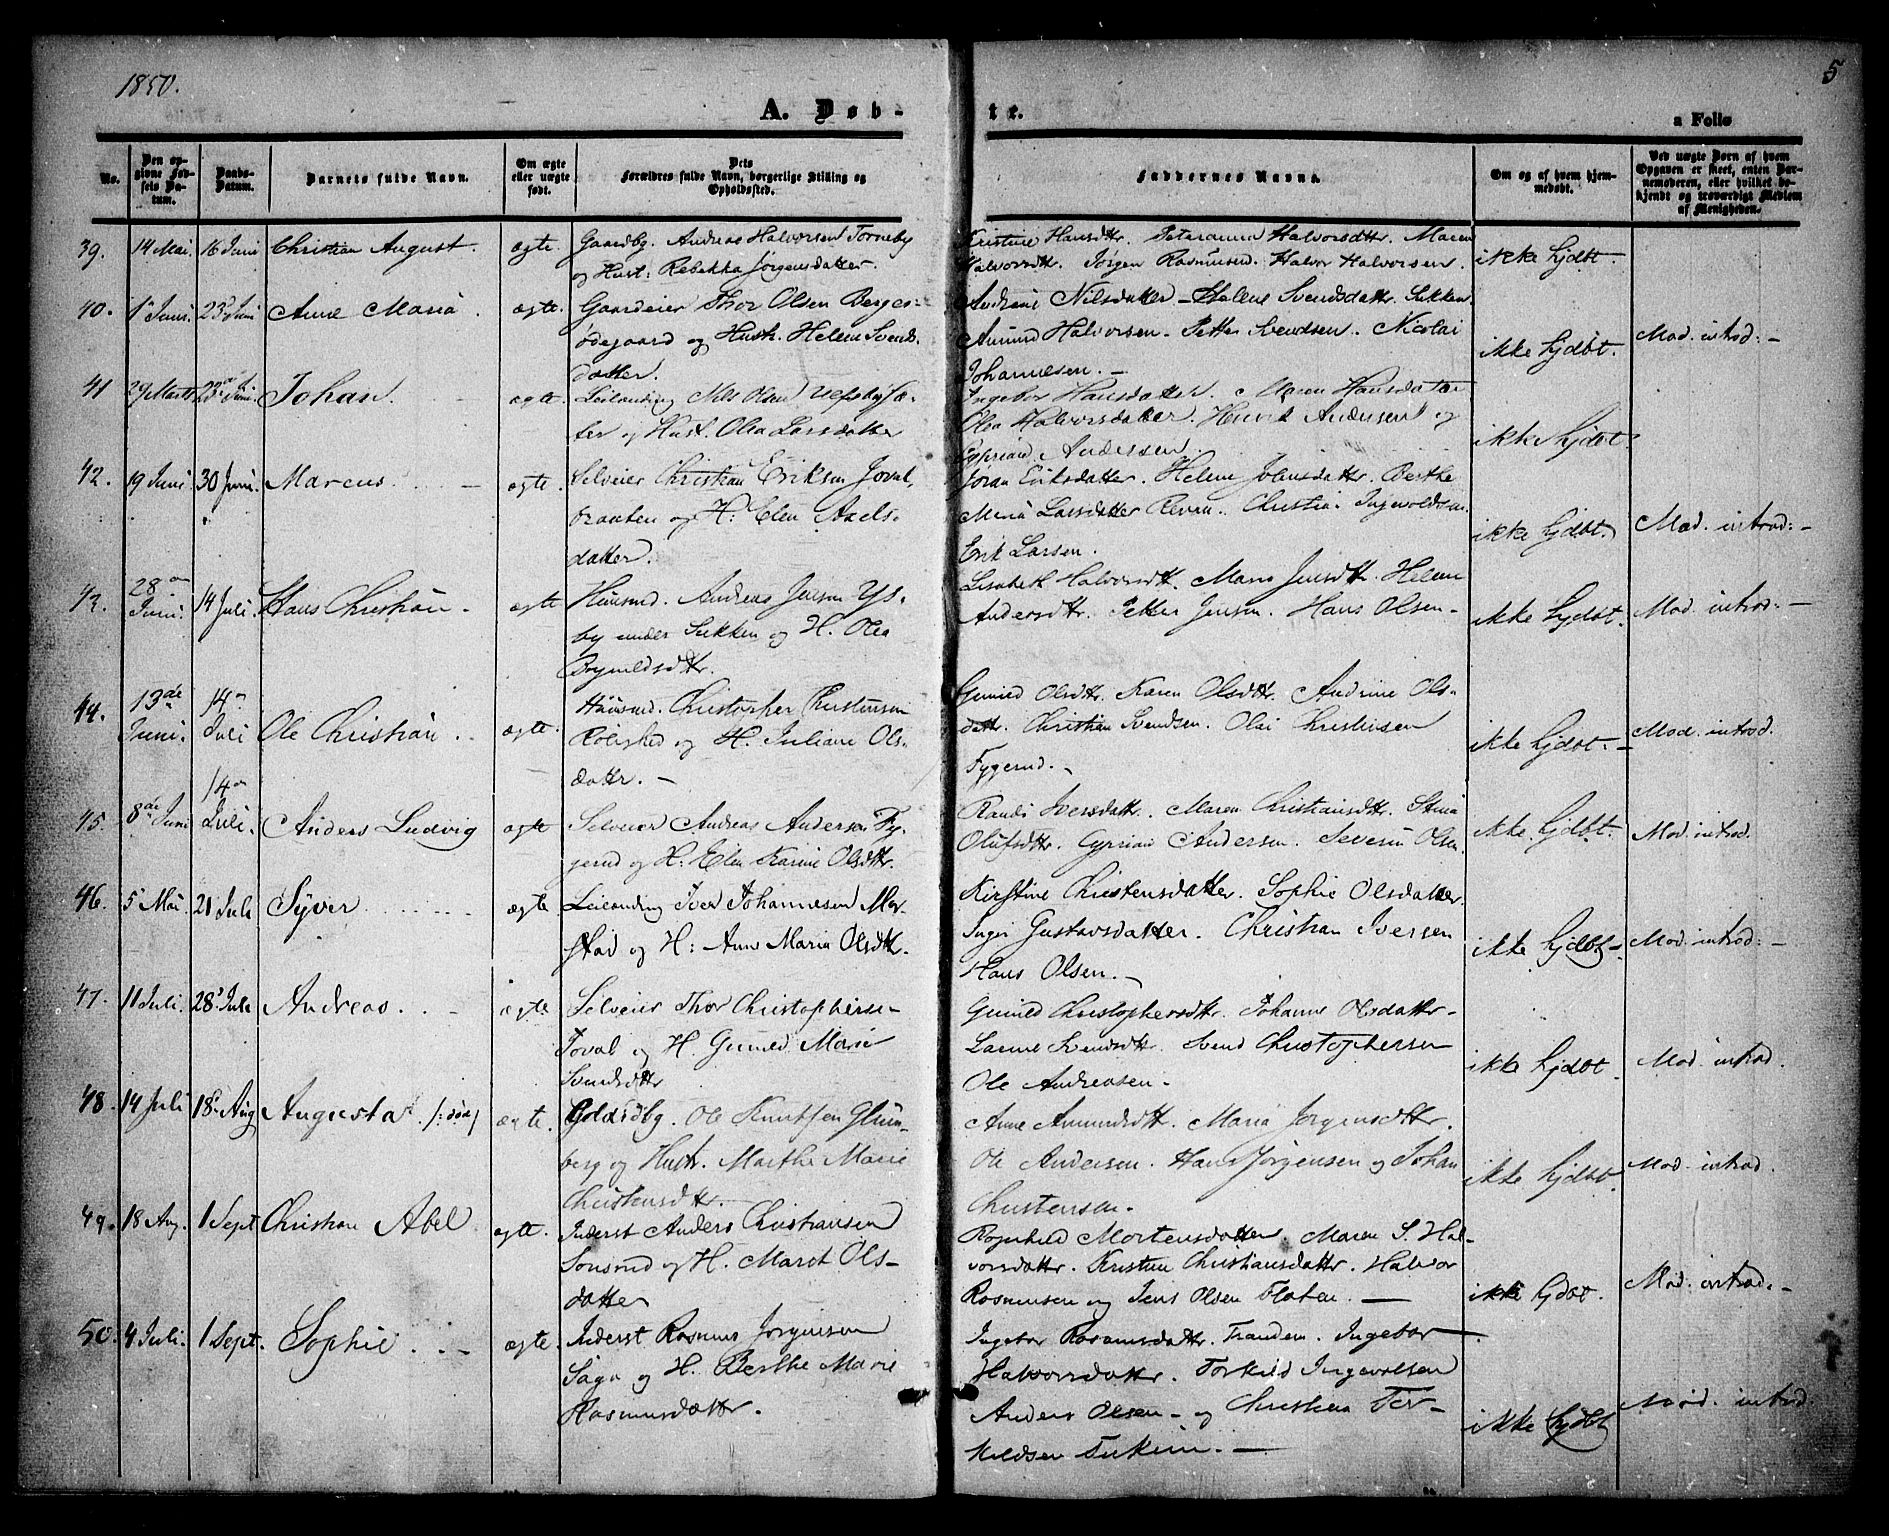 1850.
5
A. Døb-
te.
a Follo
No.
Den op-
givne Fød-
sels Da-
tum.
Daabs-
Datum.
Barnets fulde Navn.
Om ægte
eller uægte
født.
Dets
Forældres fulde Navn, borgerlige Stilling og
Opholdssted.
Faddernes Navne.
Om og af hvem hjem-
medøbt.
Ved uægte Børn af hvem
Opgaven er skeet, enten Bar-
nemoderen, eller hvilket be-
kjendt og troværdigt Medlem
af Menigheden.
39. 14 Mai. 16 Juni Christian August. ægte. Gaardbg. Andreas Halvorsen Torneby
og Hust: Rebekka Jørgensdatter.
Kristine Hansdttr. Halvorsdttr. Maren
Halvorsdttr. Jørgen Rasmusen. Halvor Halvorsen.
ikke hjdøbt.
40. 1 Juni. 23 Juni Anne Maria. ægte. Gaardeier Thor Olsen Berges-
ødegaard og Hustr. Helene Svends-
datter.
Andrine Nilsdatter - Helene Svendsdattr. Sukken.
Amund Halvorsen - Petter Svendsen. Nicolai
Johannesen. -
ikke hjdøbt. Mod. introd: -
41 29 Marts 23 Juni. Johan. ægte. Leilænding Nils Olsen
og Hust. Olea Larsdatter
Ingebor Hansdatter. Maren Hansdatter
Olea Halvorsdatter. Henrik Andersen og
Cyprian Andersen.
ikke hjdøbt.
42. 19 Juni 30 Juni. Marcus. ægte. Selveier Christian Eriksen Joval-
braaten og H: Elen Axels-
datter.
Jøran Eriksdatter. Helene Johnsdatter. Berthe
Maria Larsdatter Revou. Christia: Ingevoldsen.
Erik Larsen.
ikke hjdøbt. Mod. introd: -
43. 28 Juni. 14 Juli. Hans Christian. ægte Huusmd. Andreas Jensen Ys-
by under Sukken og H. Olea
Brynildsdttr.
Lisabeth Halvorsdtt. Maria Jensdtt. Helene
Andersdttr. Petter Jensen. Hans Olsen -
ikke hjdøbt. Mod. introd: -
44. 13de Juni. 14 Juli Ole Christian. ægte. Huusmd. Christopher Christensen
Rolighed og H. Juliane Ols-
dattr. -
Gunild Olsdttr. Karen Olsdttr. Andrine Ols-
dattr. Christian Svendsen. Olai Christensen
Fygerud. -
ikke hjdøbt. - Mod. introd.
45. 8de Juni 14 Juli. Anders Ludvig ægte Selveier Andreas Andersen Fy-
gerud og H: Elen Karine Olsdttr.
Randi Iversdattr. Maren Christiansdttr. Stina
Olufsdttr. Cyprian Andersen. Severin Olsen.
ikke hjdøbt. Mod. introd.
46. 5 Mai. 21 Juli Syver ægte. Leilænding Iver Johannesen Mor-
stad og H: Anne Maria Olsdttr.
Kirstine Christensdatter. Sophie Olsdatter.
Inger Gustavsdatter. Christian Iversen
Hans Olsen. -
ikke hjdøbt - Mod. introd: -
47. 11 Juli. 28 Juli Andreas. ægte Selveier Thor Christophersen
Joval og H. Gunild Marie
Svendsdttr
Gunild Christophersdttr. Johanne Olsdatter -
Laerne Svendsdtt. Svend Christophersen
Ole Andreasen -
ikke hjdøbt Mod. introd.
48. 14 Juli 18 Aug Augusta. /: død/ ægte. Goldsdbg. Ole Knudsen Glæn-
berg og Hustr. Marthe Marie
Christensdttr.
Anne Amundsdtt. Maria Jørgensdttr.
Ole Andersen. Hans Jørgensen og Johan
Christensen.
ikke hjdøbt. Mod. introd.
49. 18 Aug. 1 Sept. Christian Abel ægte. Inderst Anders Christiansen
Sonsrud og H. Maret Ols-
datter
Ragnhild Mortensdatter. Maren S. Hal-
vorsdattr. Kristine Christiansdattr. Halvor
Rasmusen og Jens Olsen Floten. -
ikke hjdøbt. Mod. introd: -
50. 4 Juli. 1 Sept. Sophie. ægte. Inderst Rasmus Jørgensen
Saga og H. Berthe Marie
Rasmusdatter.
Ingebor Rasmusdattr. Tranden. Ingebor
Halvorsdattr. Torkild Ingevolsen
Anders Olsen - og Christian Tor-
kildsen
ikke hjdøbt Mod. introd.